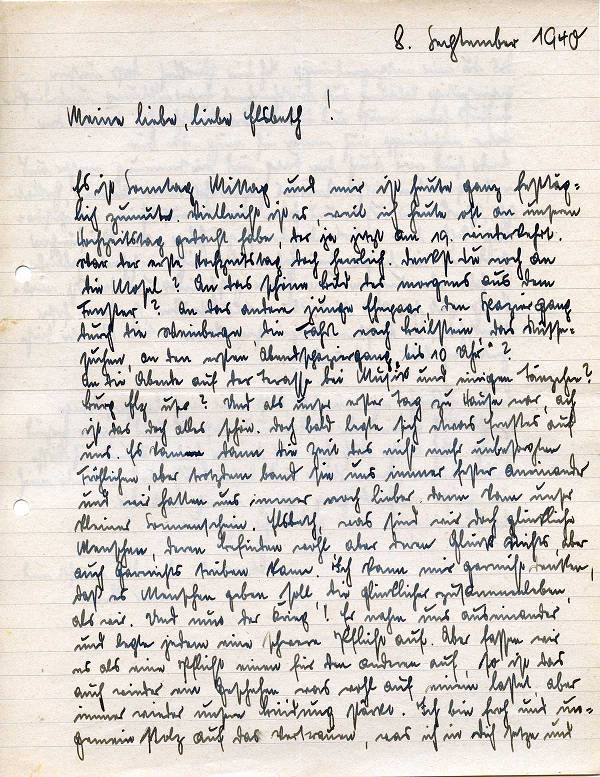 8. September 1940
Meine liebe, liebe Elsbeth!
Es ist Sonntag Mittag und mir ist heute ganz festtäg-
lich zumute. Vielleicht ist es, weil ich heute oft an unseren
Hochzeitstag gedacht habe, der ja jetzt am 19. wiederkehrt.
War der erste Hochzeitstag doch herrlich. Denkst du noch an
die Mosel? An das schöne Bild des morgens aus dem
Fenster? An das andere junge Ehepaar, den Spaziergang
durch die Weinberge die Fahrt nach Beilstein, das Nüsse-
suchen, an den ersten „Abendspaziergang bis 10 Uhr"?
An die Abende auf der Terasse bei Musik und einigen Tänzchen?
Burg Elz usw? Und als unser erster Tag zu Hause war, auch
ist das doch alles schön. Doch bald legte sich etwas ernstes auf
uns. Es kam dann die Zeit des nicht mehr unbesorgten
Fröhlichen, aber trotzdem band sie uns immer fester aneinander
und wir hatten uns immer noch lieber. Dann kam unser
kleiner Sonnenschein. Elsbeth, was sind wir doch glückliche
Menschen, deren Befinden wohl aber deren Glück nichts, aber
auch garnichts trüben kann. Ich kann mir garnicht denken,
daß es Menschen geben soll, die glücklicher zusammenleben,
als wir. Und nun der Krieg! Er nahm uns auseinander
und legte jedem eine schwere Pflicht auf. Aber fassen wir
es als eine Pflicht einen für den anderen auf, so ist das
auch wieder ein Geschehen was wohl auf einem lastet, aber
immer wieder unsere Bindung stärkt. Ich bin froh und un-
gemein stolz auf das Vertrauen, was ich in dich setze und